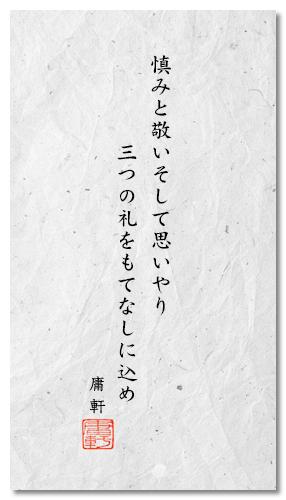 慎みと敬いそして思いやり
三つの礼をもてなしに込め
庸軒
庸軒